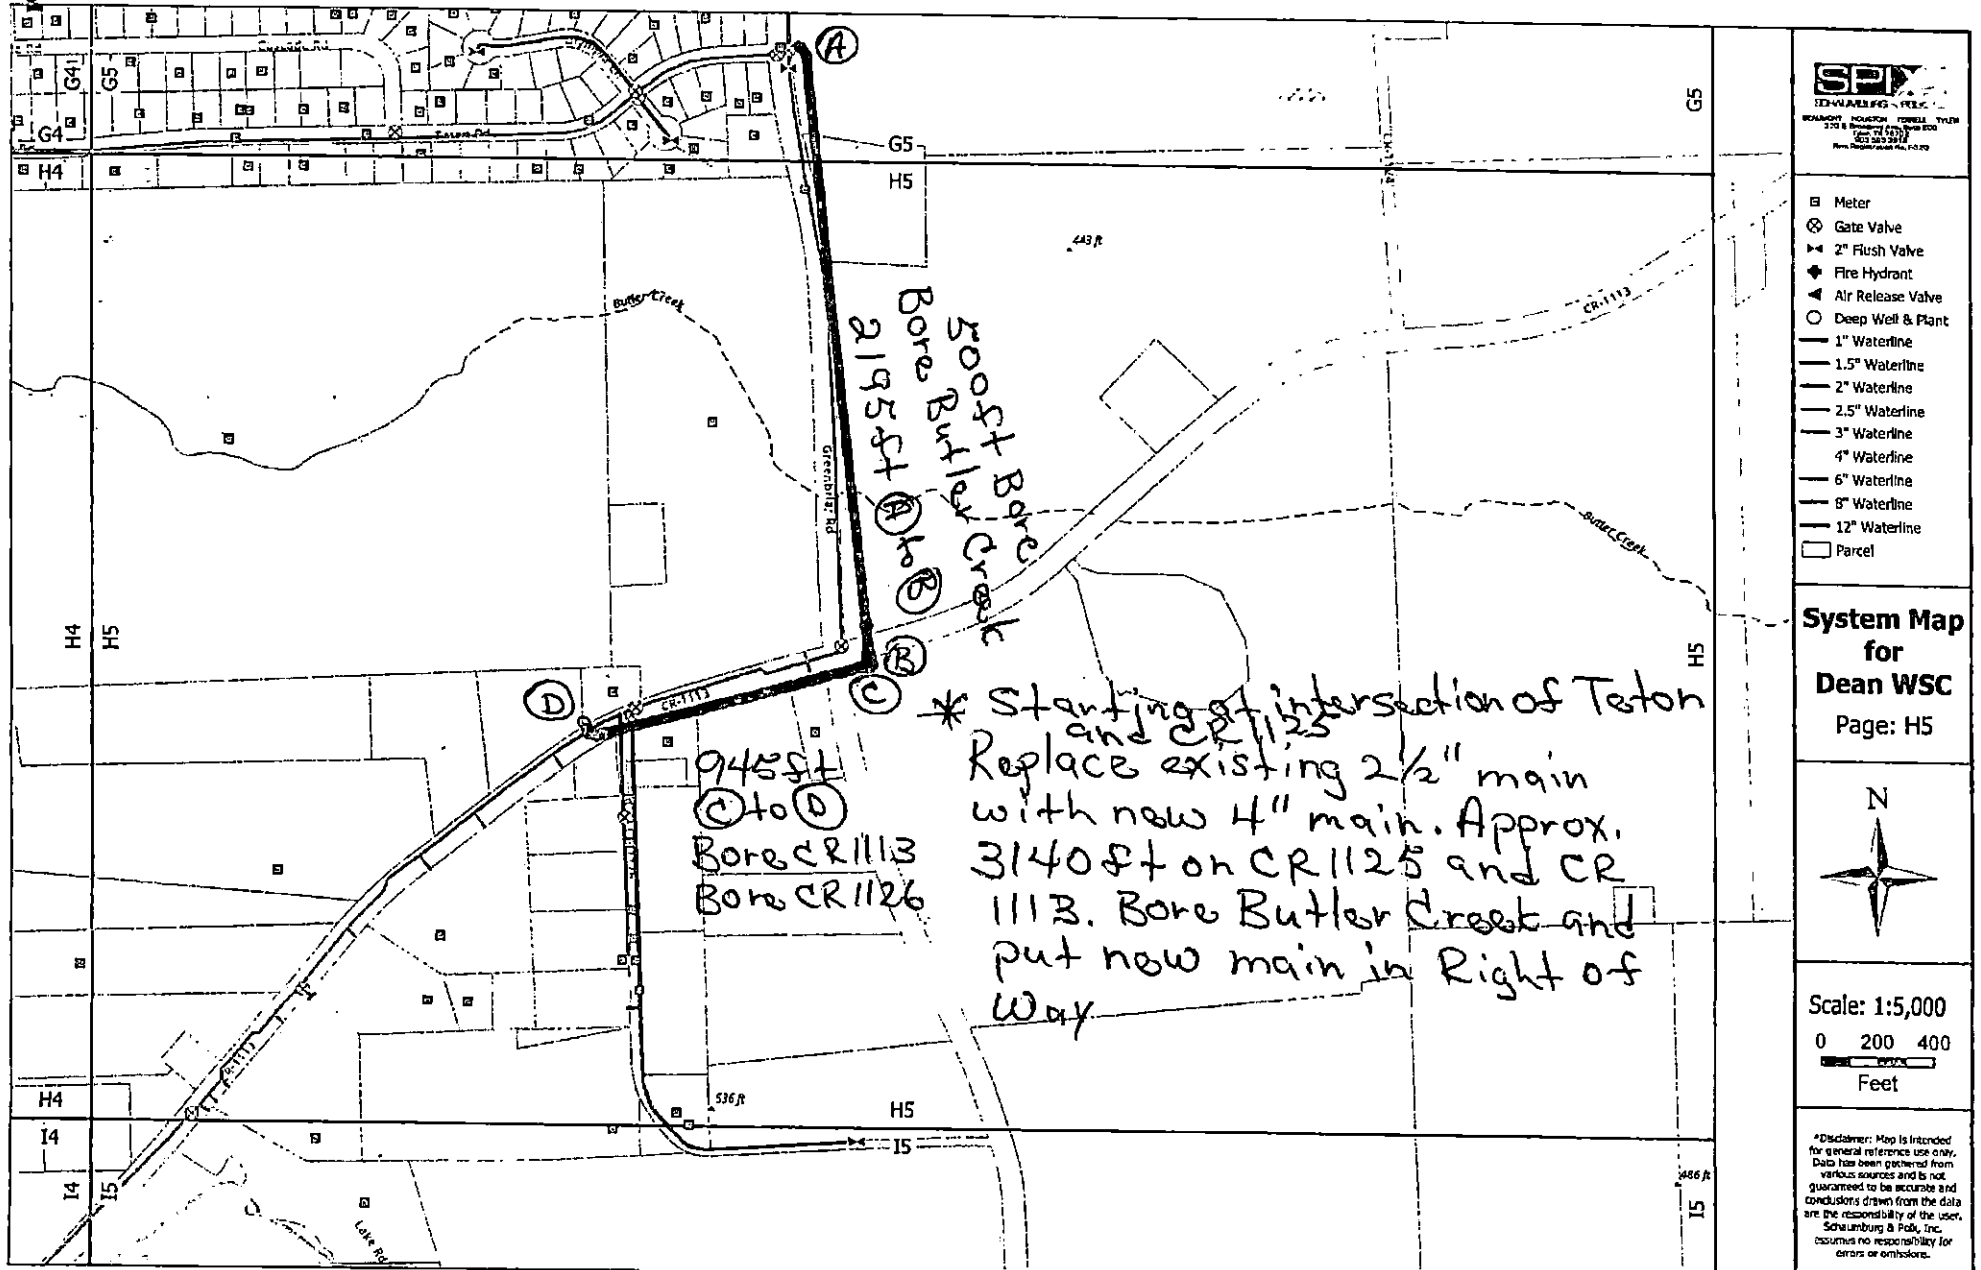 A
G4
G5
G4
H4
Teton Rd
G5
H5
G5
443 ft
CR-1113
Butler Creek
500ft Bore
Bore Butler Creek
2195ft A to B
Greenbriar Rd
Butler Creek
H4
H5
H5
B
C
D
CR-1113
945ft
C to D
Bore CR1113
Bore CR1126
* Starting at intersection of Teton
and CR1125
Replace existing 2½" main
with new 4" main. Approx.
3140ft on CR1125 and CR
1113. Bore Butler Creek and
put new main in Right of
Way
H4
I4
H5
I5
536 ft
I4
I5
Lake Rd
486 ft
I5
SPI
BEAUMONT HOUSTON TERRELL TYLER
Meter
Gate Valve
2" Flush Valve
Fire Hydrant
Air Release Valve
Deep Well & Plant
1" Waterline
1.5" Waterline
2" Waterline
2.5" Waterline
3" Waterline
4" Waterline
6" Waterline
8" Waterline
12" Waterline
Parcel
System Map
for
Dean WSC
Page: H5
N
Scale: 1:5,000
0 200 400
Feet
*Disclaimer: Map is intended
for general reference use only.
Data has been gathered from
various sources and is not
guaranteed to be accurate and
conclusions drawn from the data
are the responsibility of the user.
Schaumburg & Polk, Inc.
assumes no responsibility for
errors or omissions.